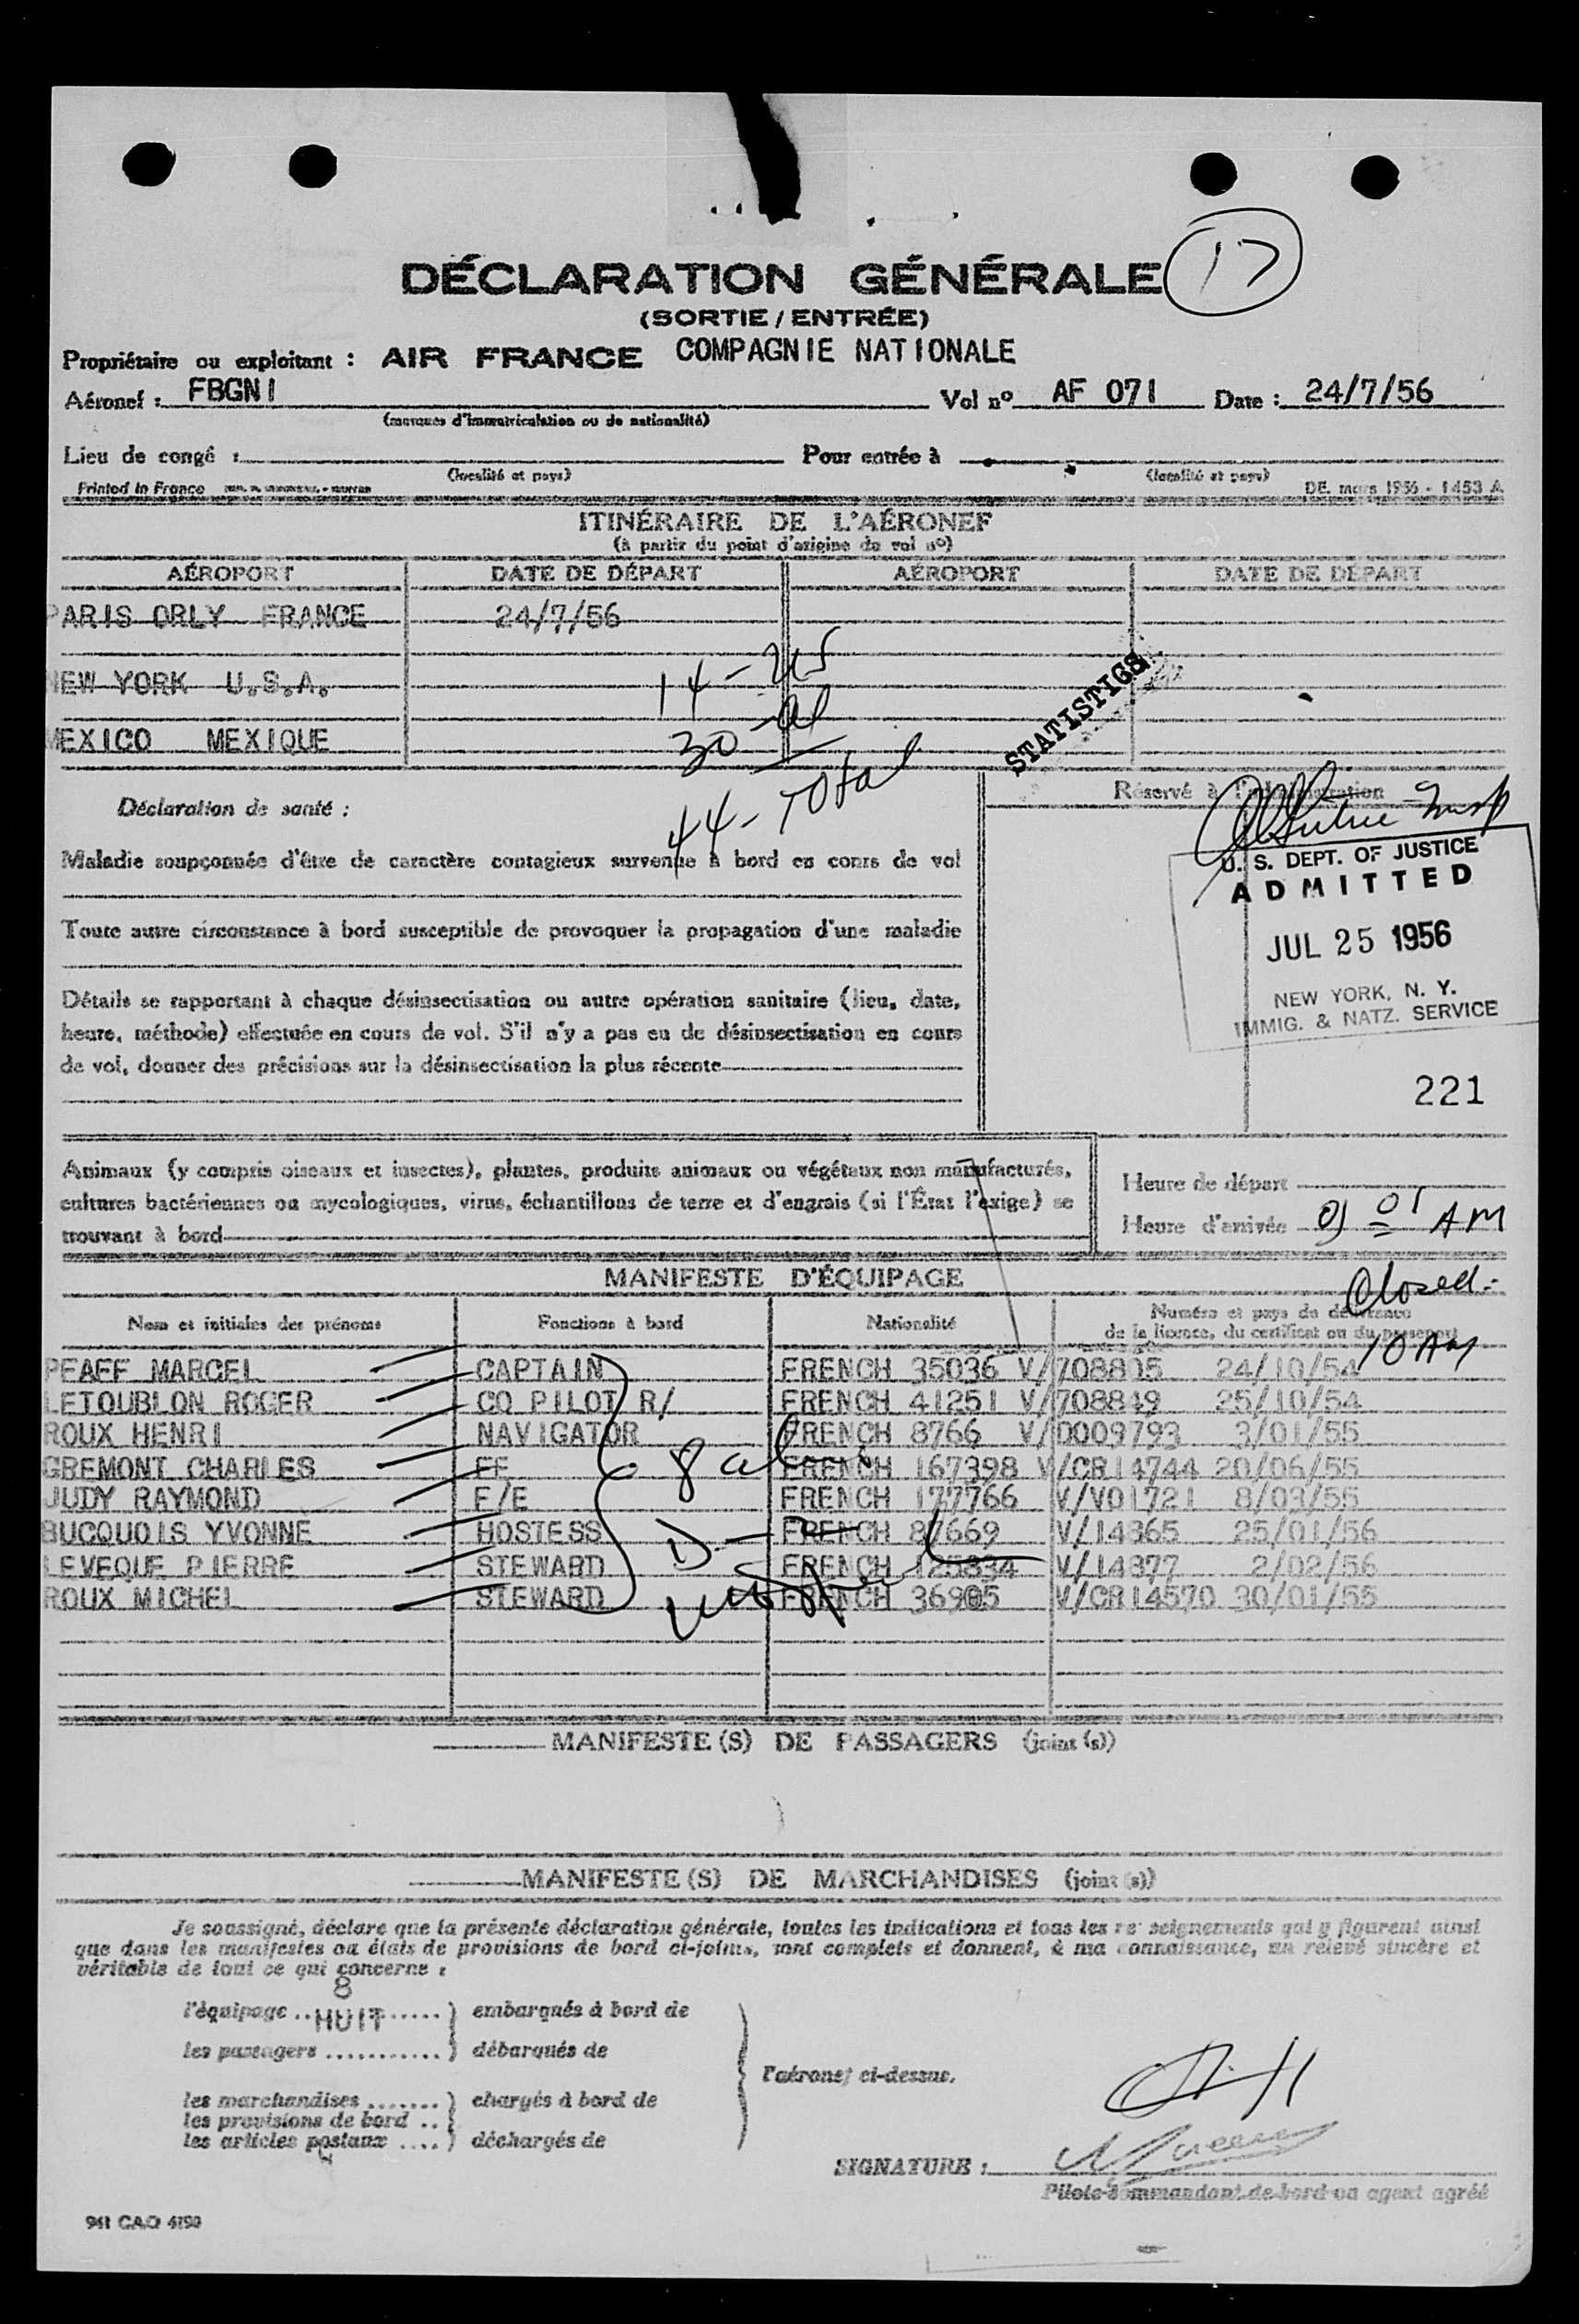 17
DÉCLARATION GÉNÉRALE
(SORTIE / ENTRÉE)
Propriétaire ou exploitant : AIR FRANCE COMPAGNIE NATIONALE
Aéronef : FBGNI Vol nº AF 071 Date : 24/7/56
(marques d'immatriculation ou de nationalité)
Lieu de congé : Pour entrée à
(localité et pays) (localité et pays)
Printed in France DE. mars 1956 - 1453 A
ITINÉRAIRE DE L'AÉRONEF
(à partir du point d'origine du vol nº)
AÉROPORT DATE DE DÉPART AÉROPORT DATE DE DÉPART
PARIS ORLY FRANCE 24/7/56
NEW YORK U.S.A.
MEXICO MEXIQUE
14 - US
30 - al
44 - Total
STATISTICS
Déclaration de santé :
Réservé à l'administration
Maladie soupçonnée d'être de caractère contagieux survenue à bord en cours de vol
Toute autre circonstance à bord susceptible de provoquer la propagation d'une maladie
Détails se rapportant à chaque désinsectisation ou autre opération sanitaire (lieu, date,
heure, méthode) effectuée en cours de vol. S'il n'y a pas eu de désinsectisation en cours
de vol, donner des précisions sur la désinsectisation la plus récente
U. S. DEPT. OF JUSTICE
ADMITTED
JUL 25 1956
NEW YORK, N. Y.
IMMIG. & NATZ. SERVICE
221
Animaux (y compris oiseaux et insectes), plantes, produits animaux ou végétaux non manufacturés,
cultures bactériennes ou mycologiques, virus, échantillons de terre et d'engrais (si l'État l'exige) se
trouvant à bord
Heure de départ
Heure d'arrivée 01 AM
MANIFESTE D'ÉQUIPAGE
Closed -
10 AM
Nom et initiales des prénoms Fonctions à bord Nationalité Numéro et pays de délivrance
de la licence, du certificat ou du passeport
PFAFF MARCEL CAPTAIN FRENCH 35036 V/708805 24/10/54
LETOUBLON ROGER CO PILOT R/ FRENCH 41251 V/708849 25/10/54
ROUX HENRI NAVIGATOR FRENCH 8766 V/D009793 3/01/55
GREMONT CHARLES FE FRENCH 167398 V/CR14744 20/06/55
JUDY RAYMOND F/E FRENCH 177766 V/V01721 8/03/55
BUCQUOIS YVONNE HOSTESS FRENCH 87669 V/14365 25/01/56
LEVEQUE PIERRE STEWARD FRENCH 125834 V/14377 2/02/56
ROUX MICHEL STEWARD FRENCH 36905 V/CR14570 30/01/55
8
MANIFESTE (S) DE PASSAGERS (joint (s))
MANIFESTE (S) DE MARCHANDISES (joint (s))
Je soussigné, déclare que la présente déclaration générale, toutes les indications et tous les renseignements qui y figurent ainsi
que dans les manifestes ou états de provisions de bord ci-joints, sont complets et donnent, à ma connaissance, un relevé sincère et
véritable de tout ce qui concerne :
8
l'équipage .. HUIT ..... ) embarqués à bord de
les passagers ........... ) débarqués de
l'aéronef ci-dessus.
les marchandises ....... ) chargés à bord de
les provisions de bord ..
les articles postaux .... ) déchargés de
SIGNATURE :
Pilote commandant de bord ou agent agréé